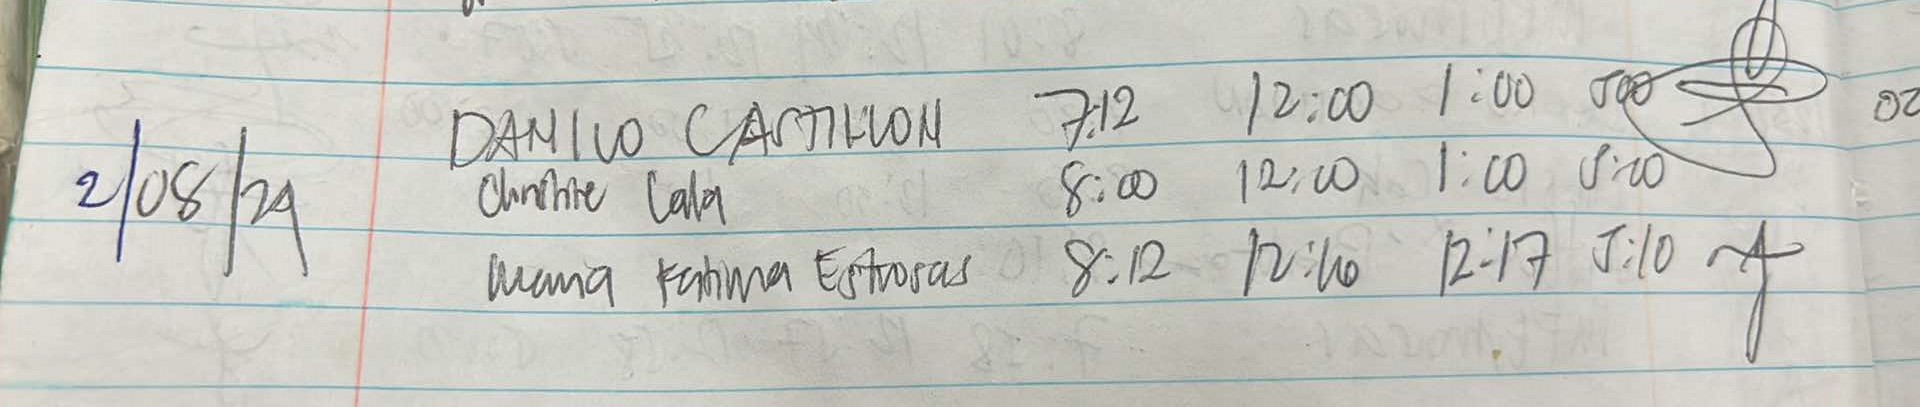 DANILO CASTILLON 7:12 12:00 1:00 500
2/08/24 Christine Lala 8:00 12:00 1:00 5:00
Maria Fatima Estrosas 8:12 12:16 12:17 5:10